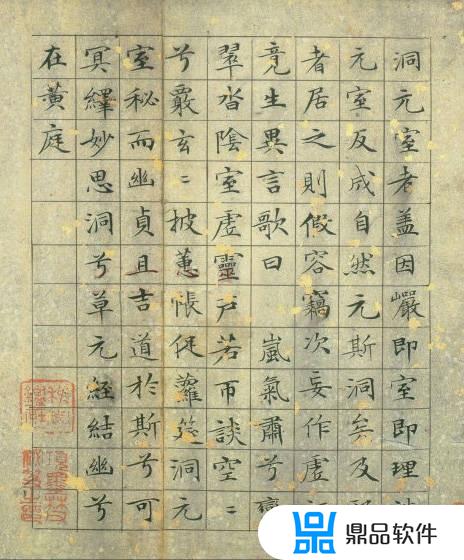 洞元室者盖因巖即室即理
元室反成自然元斯洞矣及
者居之則假容竊次妄作虛
竟生異言歌曰 嵐氣肅兮
翠沓陰室虛靈戶若帀談空〻
兮覈玄〻披蕙帳促蘿筵洞元
室秘而幽貞且吉道於斯兮可
冥繹妙思洞兮草元經結幽兮
在黃庭
鼎品软件